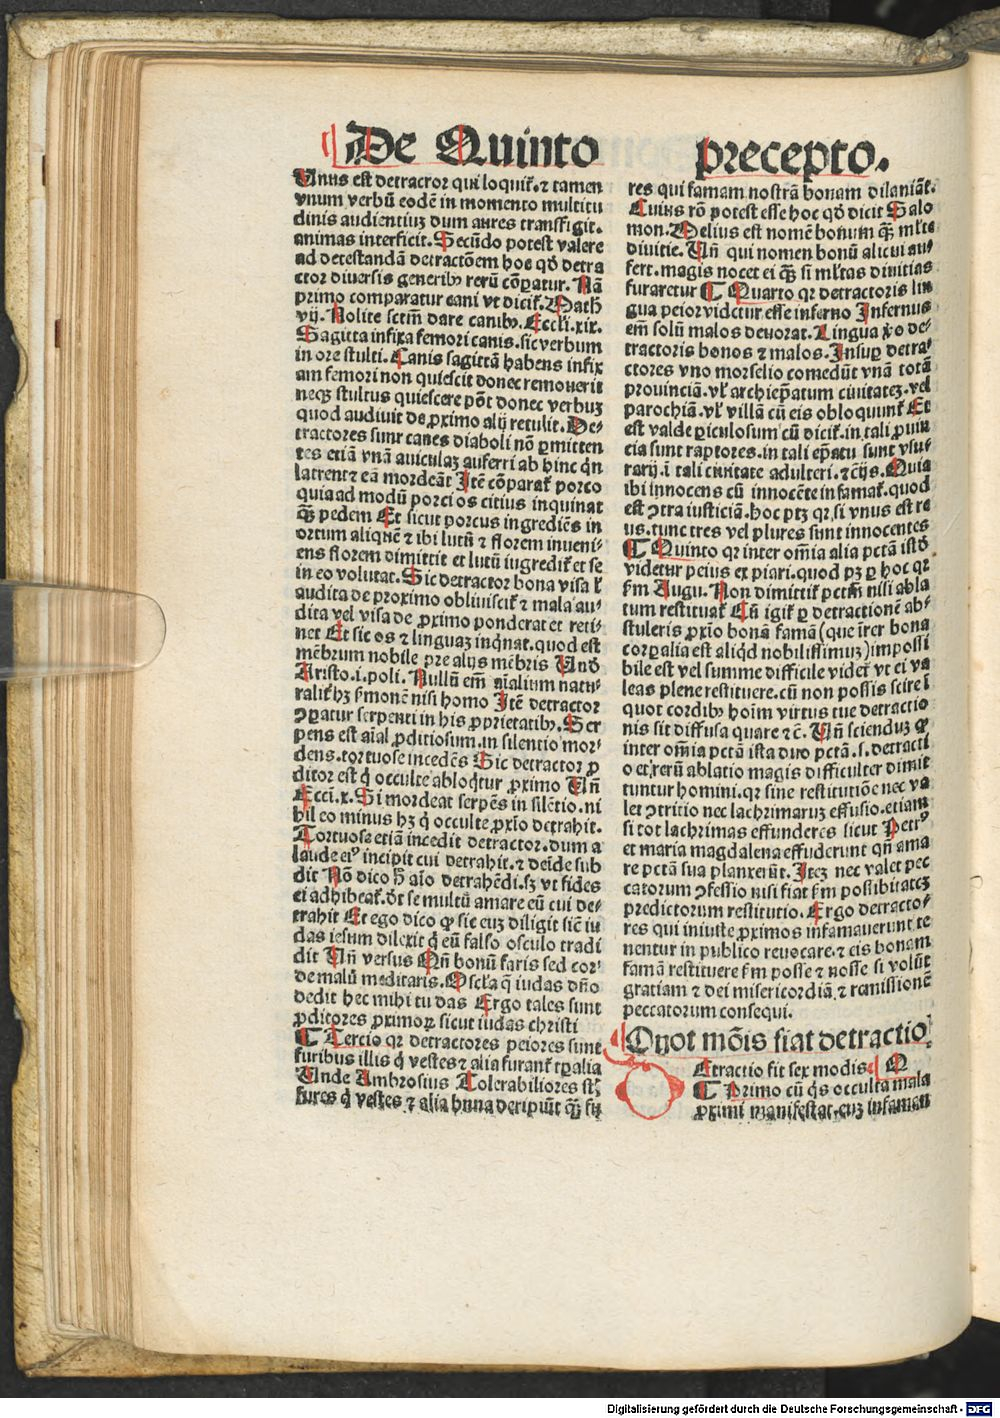 De Quinto precepto.
Unus est detractor qui loquit̃. ⁊ tamen
vnum verbũ eodẽ in momento multitu
dinis audientiuʒ dum aures transfigit.
animas interficit. Secũdo potest valere
ad detestandã detractõem hoc qđ detra
ctor diuersis generibꝰ rerũ cõpatur. Nã
primo comparatur cani vt dicit̃. Math
vij. Nolite sctm̃ dare canibꝰ. Eccli. xix.
Sagitta infixa femori canis. sic verbum
in ore stulti. Canis sagittã habens infix
am femori non quiescit donec remouerit
neqʒ stultus quiescere põt donec verbuʒ
quod audiuit de ꝓximo alij retulit. De-
tractores sunt canes diaboli nõ ꝑmitten
tes etiã vnã auiculaʒ auferri ab hinc qͥn
latrent ⁊ eã mordeãt Itẽ cõparat̃ porco
quia ad modũ porci os citius inquinat
qͣʒ pedem Et sicut porcus ingrediẽs in
ortum aliquẽ ⁊ ibi lutũ ⁊ florem inueni-
ens florem dimittit et lutũ ingredit̃ et se
in eo volutat. Sic detractor bona visa ł
audita de proximo obliuiscit̃ ⁊ mala au-
dita vel visa de ꝓximo ponderat et reti-
net Et sic os ⁊ linguaʒ inqͥnat. quod est
mẽbrum nobile pre alijs mẽbris Unđ
Aristo. i. poli. Nullũ em̃ aĩalium natu-
ralit̃ hʒ ẜmonẽ nisi homo Itẽ detractor
ꝯꝑatur serpenti in his ꝓprietatibꝰ. Ser
pens est aĩal ꝓditiosum. in silentio mor-
dens. tortuose incedẽs Sic detractor ꝓ
ditor est qͥ occulte abloqͥtur ꝓximo Uñ
Ecci. x. Si mordeat serpẽs in silẽtio. ni
hil eo minus hʒ qͥ occulte ꝓxĩo detrahit.
Tortuose etiã incedit detractor. dum a
laude eiꝰ incipit cui detrahit. ⁊ deĩde sub
dit Nõ dico h̃ aĩo detrahẽdi. sʒ vt fides
ei adhibeat̃. đt se multũ amare eũ cui de-
trahit Et ego dico ꝙ sic eũʒ diligit sic̃ iu
das iesum dilexit qͥ eũ falso osculo tradi
dit Uñ versus Qñ bonũ faris sed cor-
de malũ meditaris. Oscĺa q̃ iudas dño
dedit hec mihi tu das Ergo tales sunt
ꝓditores ꝓximoꝝ sicut iudas christi
¶ Tercio qꝛ detractores peiores sunt
furibus illis qͥ vestes ⁊ alia furant̃ tꝑalia
Unde Ambrosius Tolerabiliores st̃
fures qͥ vestes ⁊ alia bona deripiũt qͣʒ fu
res qui famam nostrã bonam dilaniãt.
Cuius rõ potest esse hoc qđ dicit Salo
mon. Melius est nomẽ bonum qͣʒ mĺte
diuitie. Uñ qui nomen bonũ alicui au-
fert. magis nocet ei qͣʒ si mĺtas diuitias
furaretur ¶ Quarto qꝛ detractoris lin
gua peior videtur esse inferno Infernus
em̃ solũ malos deuorat. Lingua v̊o de-
tractoris bonos ⁊ malos. Insuꝑ detra-
ctores vno morsello comedũt vnã totã
prouinciã. vĺ archiep̃atum ciuitateʒ. vel
parochiã. vĺ villã cũ eis obloquunt̃ Et
est valde ꝑiculosum cũ dicit̃. in tali ꝓuin
cia sunt raptores. in tali ep̃atu sunt vsu-
rarij. ĩ tali ciuitate adulteri. ⁊ c̃ijs. Quia
ibi innocens cũ innocẽte infamat̃. quod
est ꝯtra iusticiã. hoc ptʒ qꝛ si vnus est re
us. tunc tres vel plures sunt innocentes
¶ Quinto qꝛ inter om̃ia alia pctã istđ
videtur peius expiari. quod pʒ ꝑ hoc qꝛ
ẜm Augu. Non dimittit̃ pctm̃ nisi abla
tum restituat̃ Cũ igit̃ ꝑ detractionẽ ab-
stuleris ꝓxĩo bonã famã (que ĩter bona
corꝑalia est aliqͥd nobilissimuʒ) impossi
bile est vel summe difficile videt̃ vt ei va
leas plene restituere. cũ non possis scire ĩ
quot cordibꝰ hoĩm virtus tue detractio
nis sit diffusa quare ⁊ c̃. Uñ sciendũ ꝙ
inter om̃ia pctã ista duo pctã. s. detracti
o et rerũ ablatio magis difficulter dimit
tuntur homini. qꝛ sine restitutiõe nec va
let ꝯtritio nec lachrimaruʒ effusio. etiam
si tot lachrimas effunderes sicut Petrꝰ
et maria magdalena effuderunt qñ ama
re pctã sua planxerũt. Iteʒ nec valet pec
catorum ꝯfessio nisi fiat ẜm possibitateʒ
predictorum restitutio. Ergo detracto-
res qui iniuste ꝓximos infamauerunt te
nentur in publico reuocare. ⁊ eis bonam
famã restituere ẜm posse ⁊ nosse si volũt
gratiam ⁊ dei misericordiã ⁊ remissionẽ
peccatorum consequi.
Quot mõis fiat detractio
Etractio fit sex modis
¶ Primo cũ qͥs occulta mala
ꝓximi manifestat. euʒ infaman
Digitalisierung gefördert durch die Deutsche Forschungsgemeinschaft - DFG